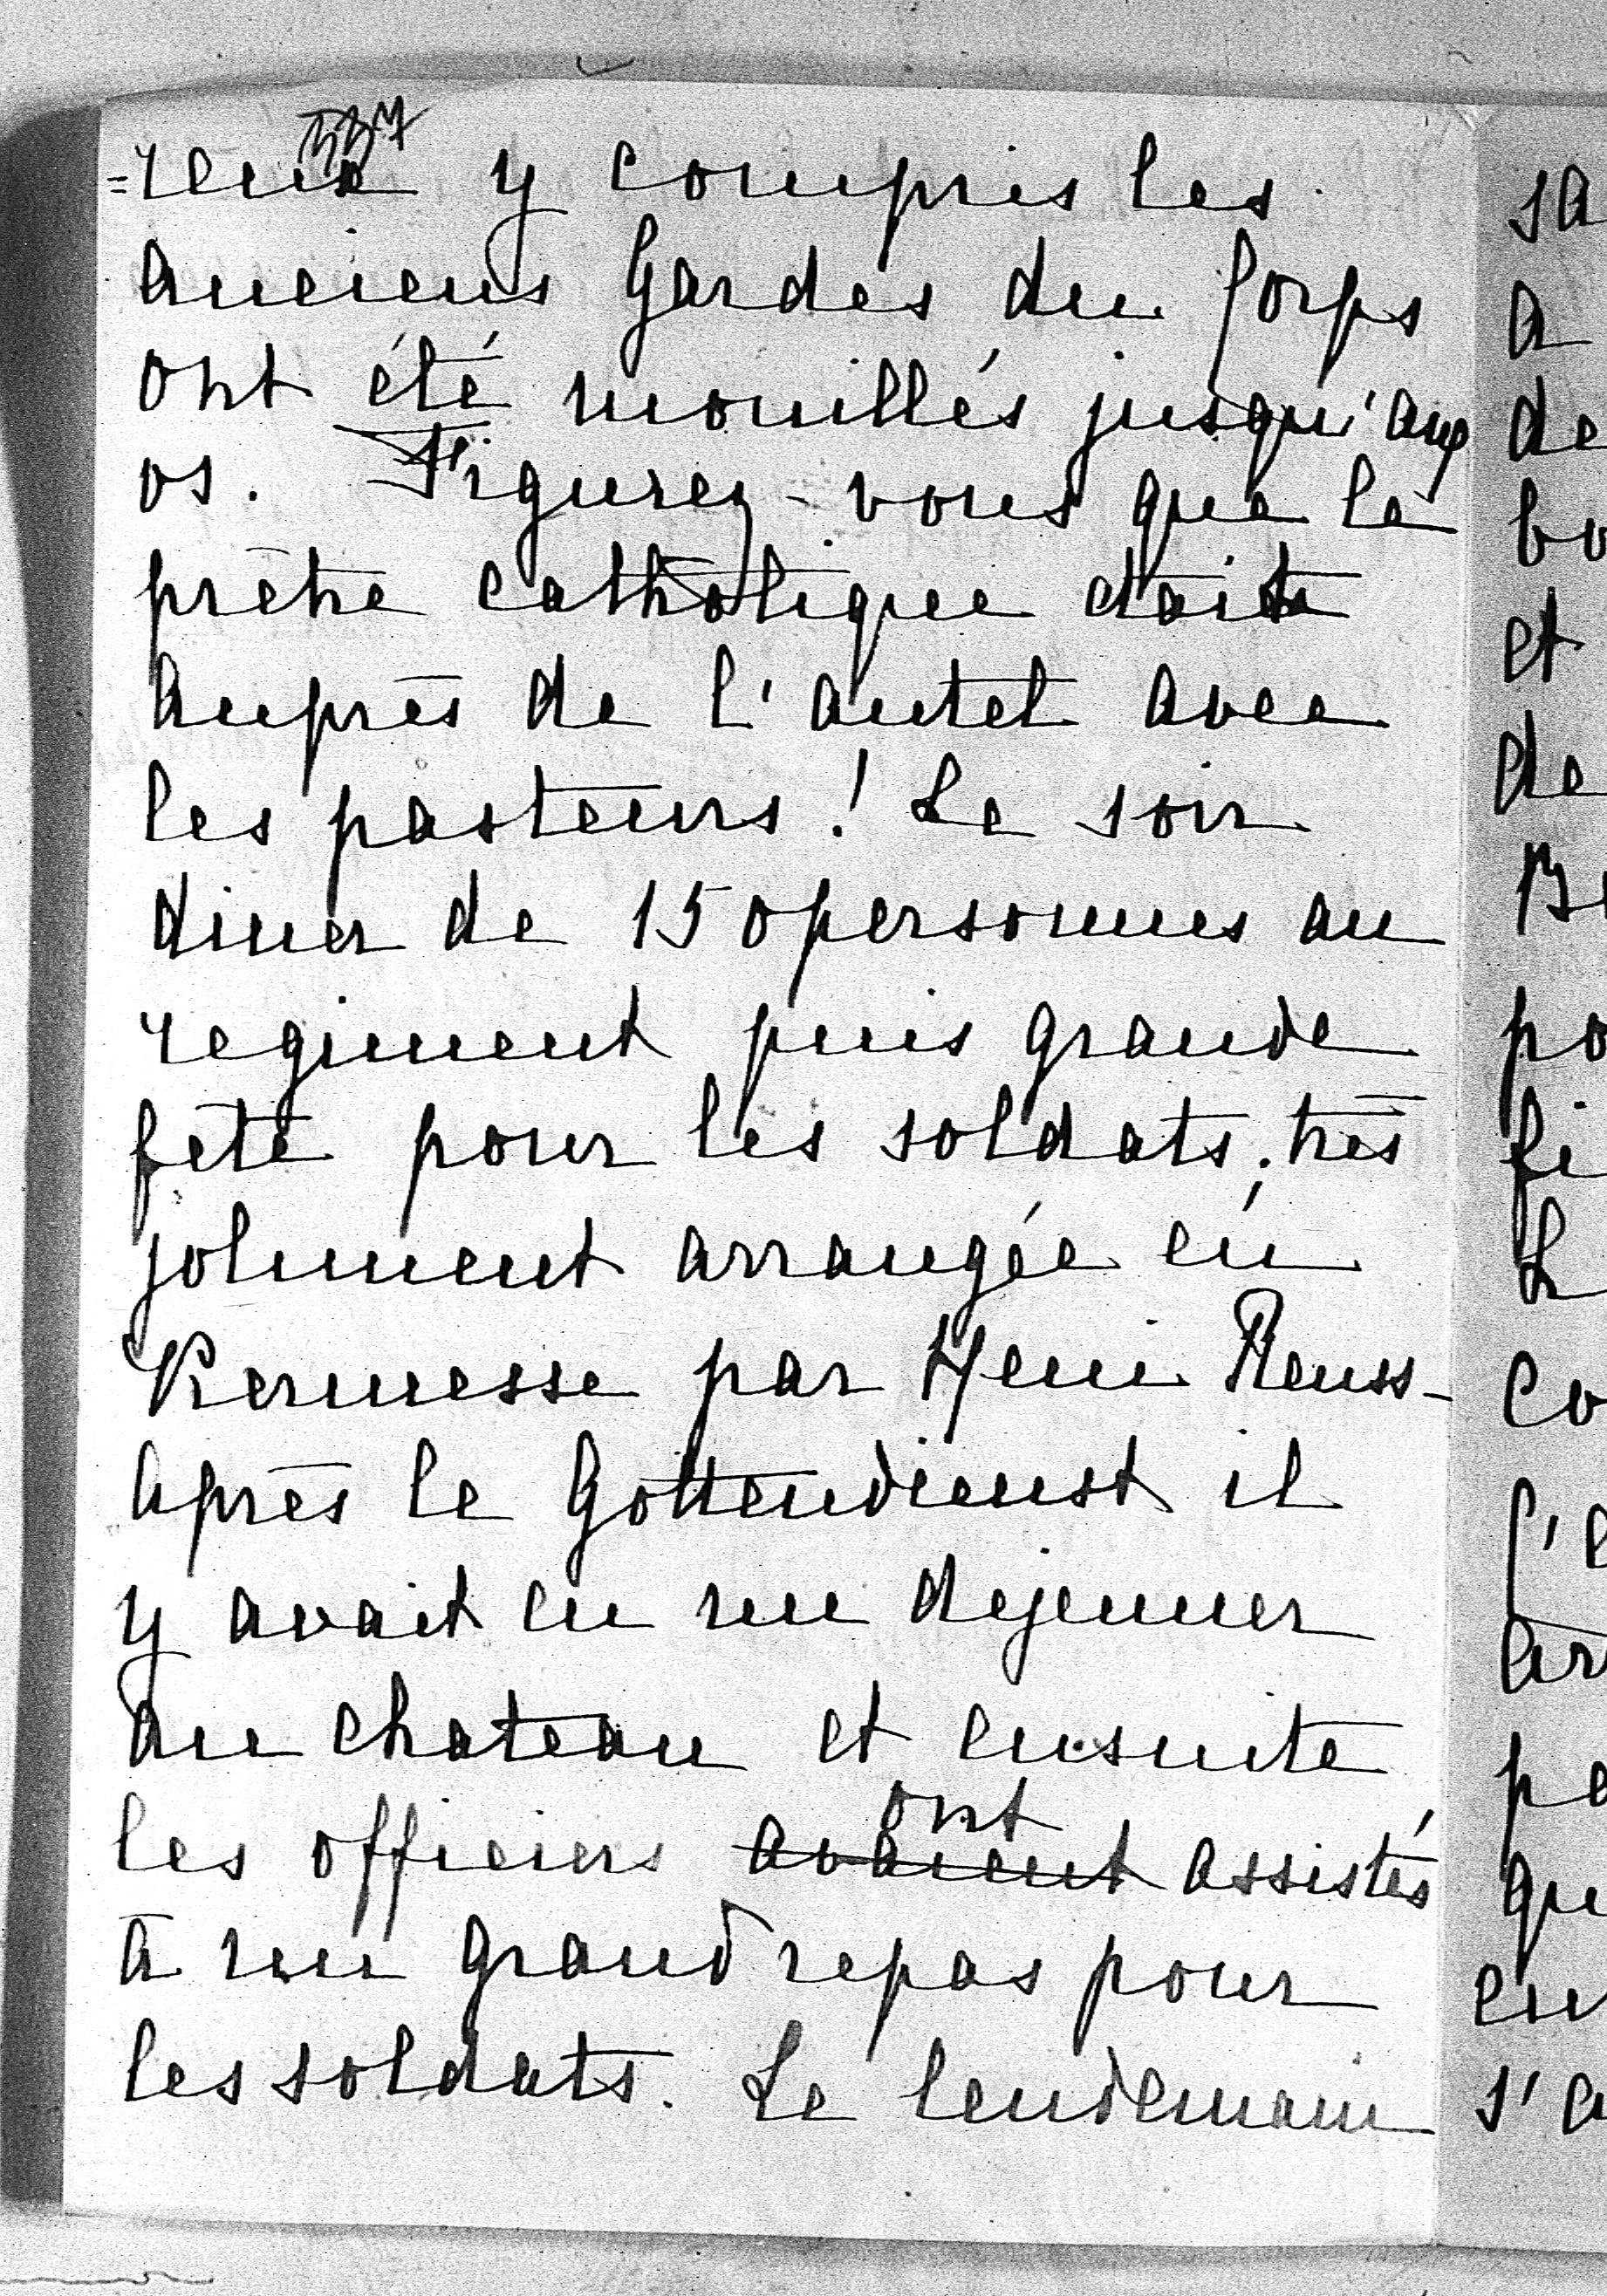 337
=reux y compris les
anciens Gardes du Corps
ont été mouillés jusqu'aux
os. Figurez-vous que le
prêtre catholique était
auprès de l'autel avec
les pasteurs! Le soir
diner de 150 personnes au
regiment puis grande
fête pour les soldats, très
joliment arrangée en
Kermesse par Henri Reuss-
après le Gottendienst il
y avait eu un dejeuner
au chateau et ensuite
ont
les officiers avaient assistés
à un grand repas pour
les soldats. Le lendemain
sa
a
de
bo
et
de
po
fi
L
co
l'e
pe
qu
en
s'a